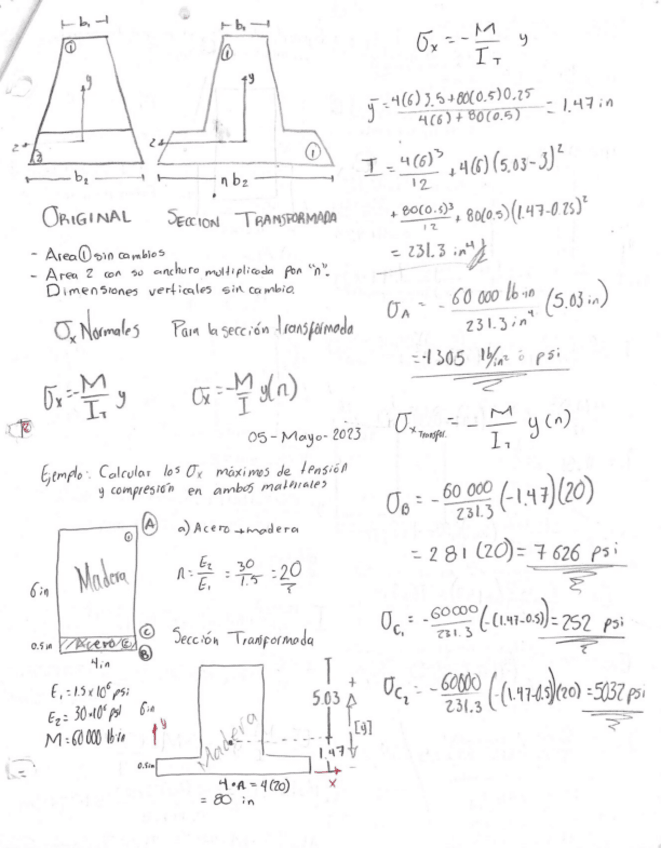 b₁
b₁
①
①
y
y
2
2
②
①
b₂
n b₂
ORIGINAL
SECCION TRANSFORMADA
- Area ① sin cambios
- Area 2 con su anchura multiplicada por "n".
Dimensiones verticales sin cambio
σx Normales Para la sección transformada
σx = -M/I_T y
σx = -M/I y(n)
05-Mayo-2023
Ejemplo: Calcular los σx máximos de tensión
y compresión en ambos materiales
A
①
Madera
6 in
0.5 in
Acero ②
C
B
4 in
a) Acero → madera
n = E₂/E₁ = 30/1.5 = 20
Sección Tranformada
E₁ = 1.5 x 10⁶ psi
E₂ = 30·10⁶ psi
M = 60 000 lb·in
6 in
y
0.5 in
Madera
5.03
+
[y]
1.47
-
x
4·n = 4(20)
= 80 in
σx = - M/I_T y
ȳ = 4(6)3.5+80(0.5)0.25 / 4(6)+80(0.5) = 1.47 in
I = 4(6)³/12 + 4(6)(5.03-3)²
+ 80(0.5)³/12 + 80(0.5)(1.47-0.25)²
= 231.3 in⁴
σA = - 60 000 lb·in / 231.3 in⁴ (5.03 in)
= -1305 lb/in² ó psi
σx Transfor. = - M/I_T y(n)
σB = - 60 000/231.3 (-1.47)(20)
= 281 (20) = 7 626 psi
σC₁ = -60000/231.3 (-(1.47-0.5)) = 252 psi
σC₂ = -60000/231.3 (-(1.47-0.5)(20) = 5032 psi